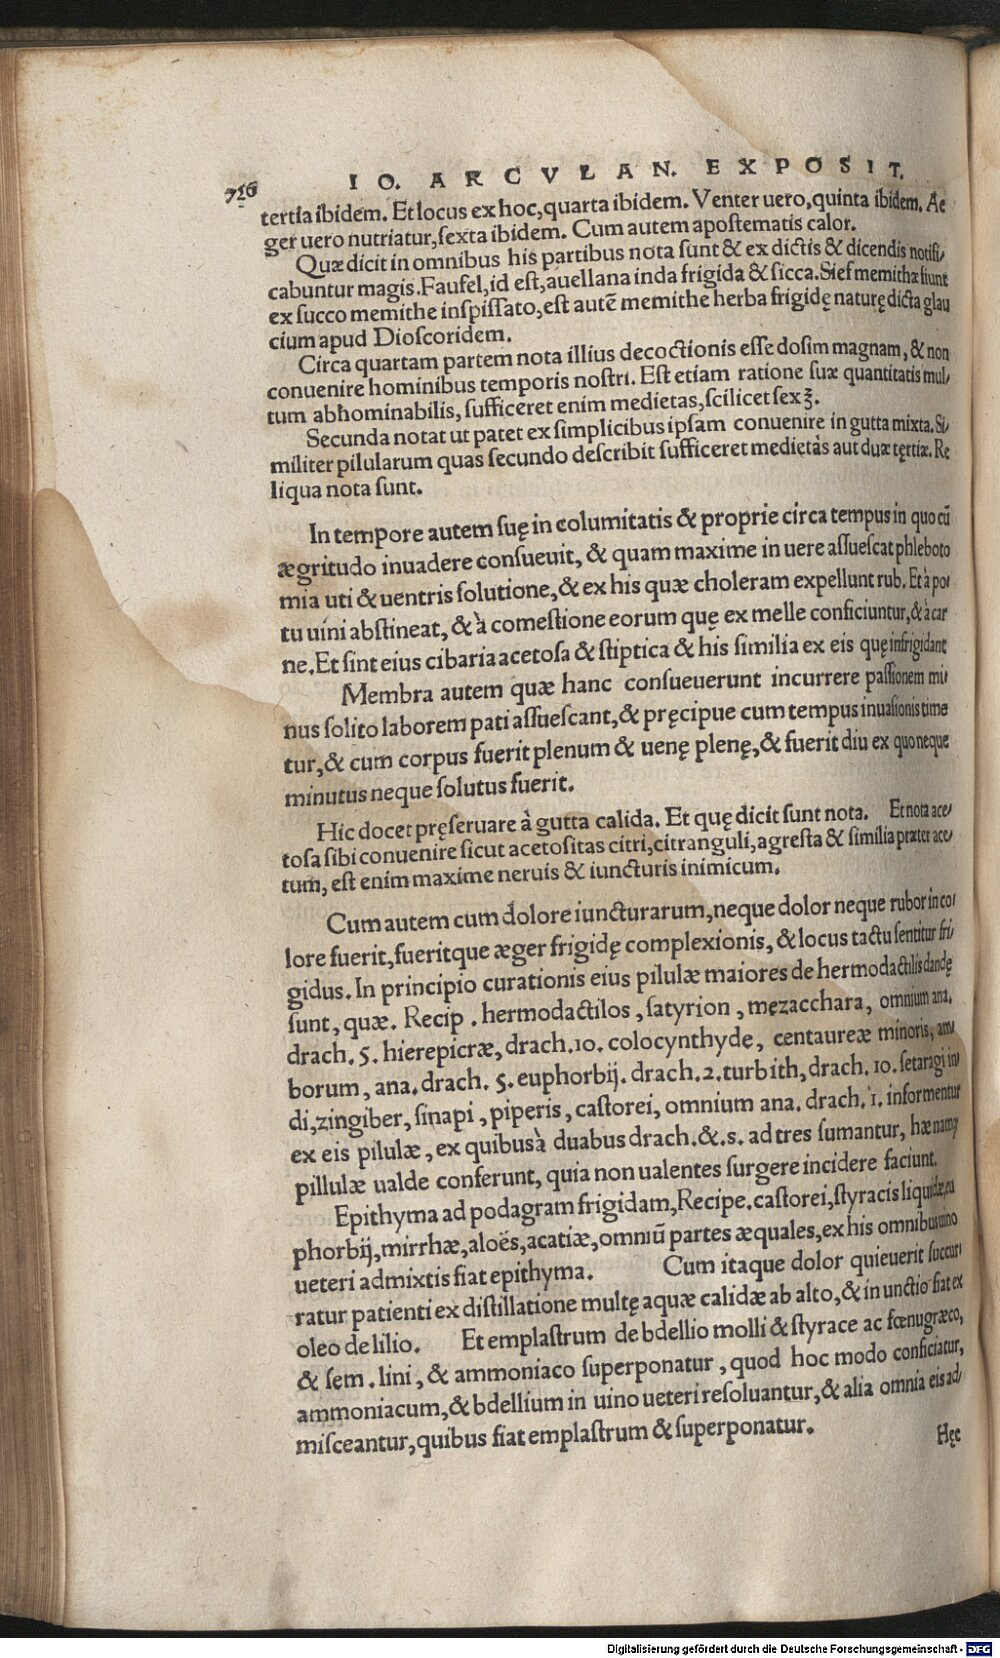 716 IO. ARCVLAN. EXPOSIT.
tertia ibidem. Et locus ex hoc, quarta ibidem. Venter uero, quinta ibidem. Ae
ger uero nutriatur, ſexta ibidem. Cum autem apoſtematis calor.
Quæ dicit in omnibus his partibus nota ſunt & ex dictis & dicendis notifi/
cabuntur magis. Faufel, id eſt, auellana inda frigida & ſicca. Sief memithæ fiunt
ex ſucco memithe inſpiſſato, eſt autē memithe herba frigidę naturę dicta glau
cium apud Dioſcoridem.
Circa quartam partem nota illius decoctionis eſſe doſim magnam, & non
conuenire hominibus temporis noſtri. Eſt etiam ratione ſuæ quantitatis mul/
tum abhominabilis, ſufficeret enim medietas, ſcilicet ſex ℥.
Secunda notat ut patet ex ſimplicibus ipſam conuenire in gutta mixta. Si/
militer pilularum quas ſecundo deſcribit ſufficeret medietàs aut duæ tęrtiæ. Re
liqua nota ſunt.
In tempore autem ſuę in columitatis & proprie circa tempus in quo cū
ægritudo inuadere conſueuit, & quam maxime in uere aſſueſcat phleboto
mia uti & uentris ſolutione, & ex his quæ choleram expellunt rub. Et à po/
tu uini abſtineat, & à comeſtione eorum quę ex melle conficiuntur, & à car
ne. Et ſint eius cibaria acetoſa & ſtiptica & his ſimilia ex eis quę infrigidant
Membra autem quæ hanc conſueuerunt incurrere paſſionem mi/
nus ſolito laborem pati aſſueſcant, & pręcipue cum tempus inuaſionis time
tur, & cum corpus fuerit plenum & uenę plenę, & fuerit diu ex quo neque
minutus neque ſolutus fuerit.
Hic docet pręſeruare à gutta calida. Et quę dicit ſunt nota. Et nota ace/
toſa ſibi conuenire ſicut acetoſitas citri, citranguli, agreſta & ſimilia præter ace/
tum, eſt enim maxime neruis & iuncturis inimicum.
Cum autem cum dolore iuncturarum, neque dolor neque rubor in co/
lore fuerit, fueritque æger frigidę complexionis, & locus tactu ſentitur fri/
gidus. In principio curationis eius pilulæ maiores de hermodactilis dandę
ſunt, quæ. Recip. hermodactilos, ſatyrion, męzacchara, omnium ana.
drach. 5. hierepicræ, drach. 10. colocynthyde, centaureæ minoris, am/
borum, ana. drach. 5. euphorbij. drach. 2. turbith, drach. 10. ſetaragi in/
di, zingiber, ſinapi, piperis, caſtorei, omnium ana. drach. 1. informentur
ex eis pilulæ, ex quibus à duabus drach. &. s. ad tres ſumantur, hæ nanq;
pillulæ ualde conferunt, quia non ualentes ſurgere incidere faciunt.
Epithyma ad podagram frigidam, Recipe. caſtorei, ſtyracis liquidæ, eu
phorbij, mirrhæ, aloës, acatiæ, omniū partes æquales, ex his omnibus uino
ueteri admixtis fiat epithyma. Cum itaque dolor quieuerit ſuccur/
ratur patienti ex diſtillatione multę aquæ calidæ ab alto, & in unctio fiat ex
oleo de lilio. Et emplaſtrum de bdellio molli & ſtyrace ac fœnugræco,
& ſem. lini, & ammoniaco ſuperponatur, quod hoc modo conficiatur,
ammoniacum, & bdellium in uino ueteri reſoluantur, & alia omnia eis ad/
miſceantur, quibus fiat emplaſtrum & ſuperponatur.
Hęc
Digitalisierung gefördert durch die Deutsche Forschungsgemeinschaft - DFG